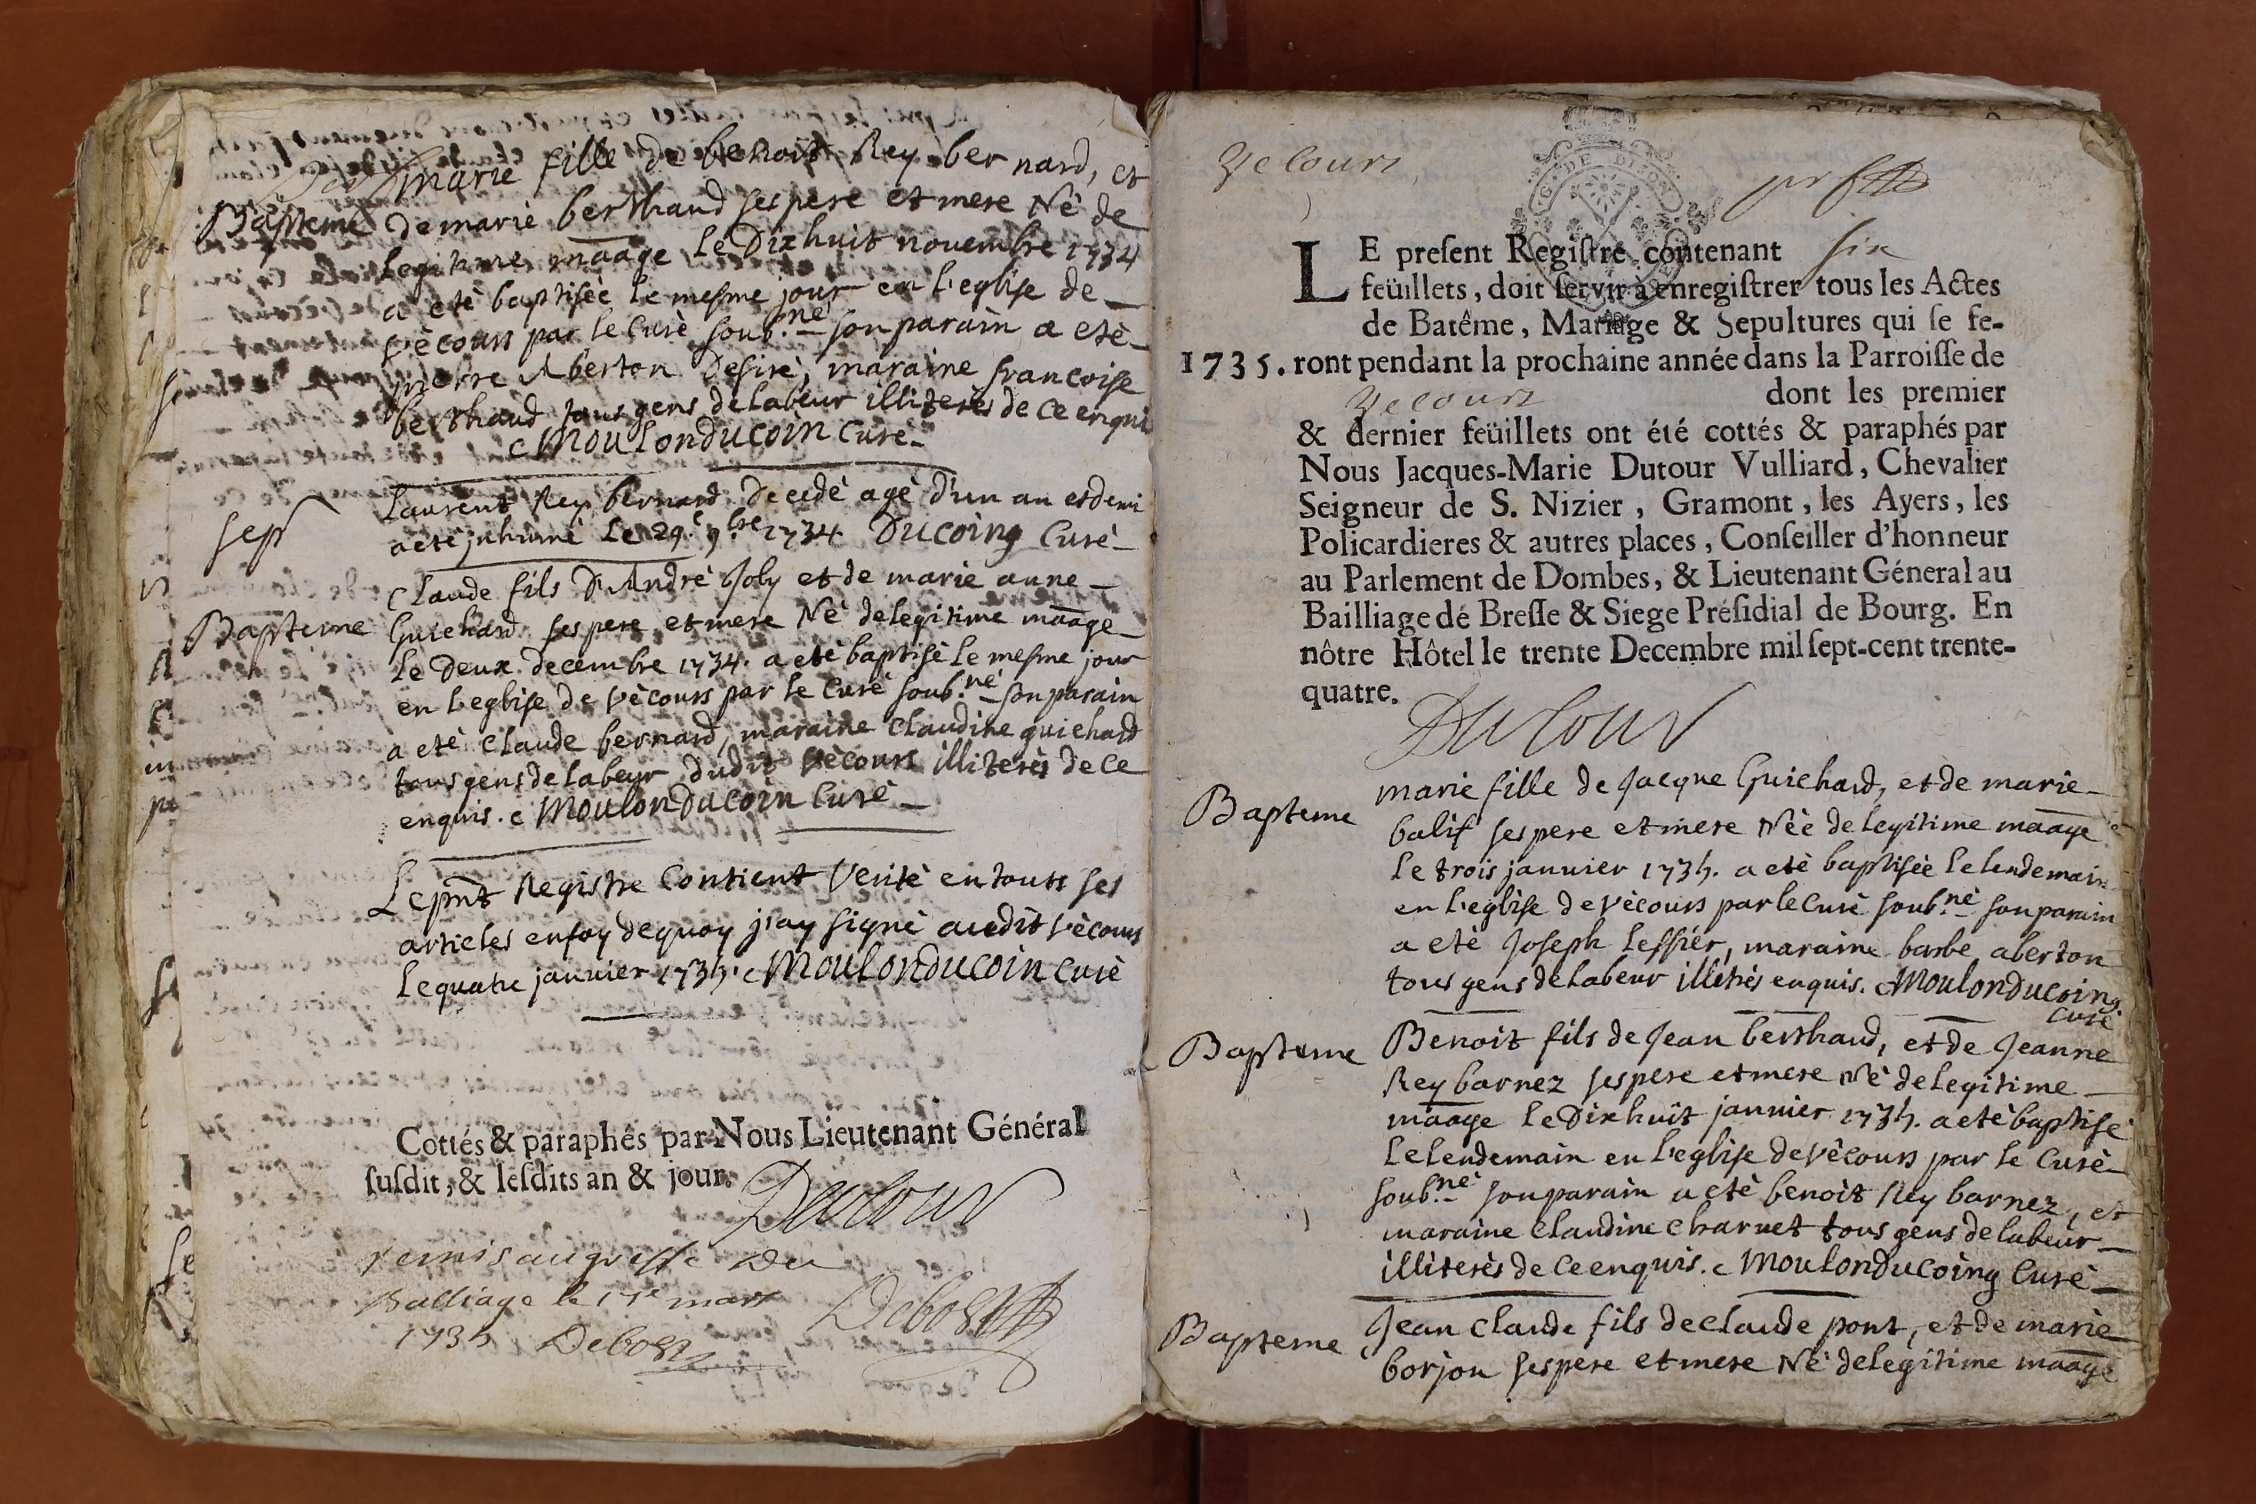 marie fille de benoit Rey bernard, et
Bapteme
de marie berthaud ses pere et mere Né de
legitime maage le Dixhuit novembre 1734
a eté baptisée le mesme jour en l'eglise de
vècours par le curé soub.né son parain a eté
pierre Aberton Desiré, maraine francoise
berthaud tous gens de labeur illiterés de ce enqui
Moulonducoin curé
sep
Laurent Rey bernard Decedé agé d'un an et demi
a eté inhumé le 29e 9bre 1734 Ducoing Curé
Bapteme
Claude fils D'André Joly et de marie anne
Guichard ses pere et mere Né de legitime maage
le Deux decembre 1734. a eté baptisé le mesme jour
en l'eglise de vècours par le Curé soub.né son parain
a eté Claude bernard, maraine Claudine guichard
tous gens de labeur dudit vècours illiterés de ce
enquis. Moulonducoin Curé
Le pnt Registre Contient Verité en touts ses
articles en foy de quoy j'ay signé audit vècours
le quatre janvier 1735. Moulonducoin Curé
Cottés & paraphés par Nous Lieutenant Général
susdit, & lesdits an & jour.
Dutour
remis au greffe du
Balliage le 1er mars
1735 Debost
Debost
Vecours
G. DE DIJON
LE present Registre contenant six
feüillets, doit servir à enregistrer tous les Actes
de Batême, Mariage & Sepultures qui se fe-
1735. ront pendant la prochaine année dans la Parroisse de
Vecours dont les premier
& dernier feüillets ont été cottés & paraphés par
Nous Jacques-Marie Dutour Vulliard, Chevalier
Seigneur de S. Nizier, Gramont, les Ayers, les
Policardieres & autres places, Conseiller d'honneur
au Parlement de Dombes, & Lieutenant Géneral au
Bailliage dé Bresse & Siege Présidial de Bourg. En
nôtre Hôtel le trente Decembre mil sept-cent trente-
quatre.
Dutour
Bapteme
marie fille de Jacque Guichard, et de marie
balif ses pere et mere Née de legitime maage
le trois janvier 1735. a eté baptisée le lendemain
en l'eglise de vècours par le Curé soub.né son parain
a eté Joseph Tessier, maraine barbe aberton
tous gens de labeur illitrés enquis. Moulonducoing
Curé
Bapteme
Benoit fils de Jean berthaud, et de Jeanne
Rey barnez ses pere et mere Né de legitime
maage le Dixhuit janvier 1735. a eté baptisé
le lendemain en l'eglise de vècours par le Curé
soub.né son parain a eté benoit Rey barnez, et
maraine Claudine Charuet tous gens de labeur
illiterés de ce enquis. Moulonducoing Curé
Bapteme
Jean Claude fils de Claude pont, et de marie
borjon ses pere et mere Né de legitime maage